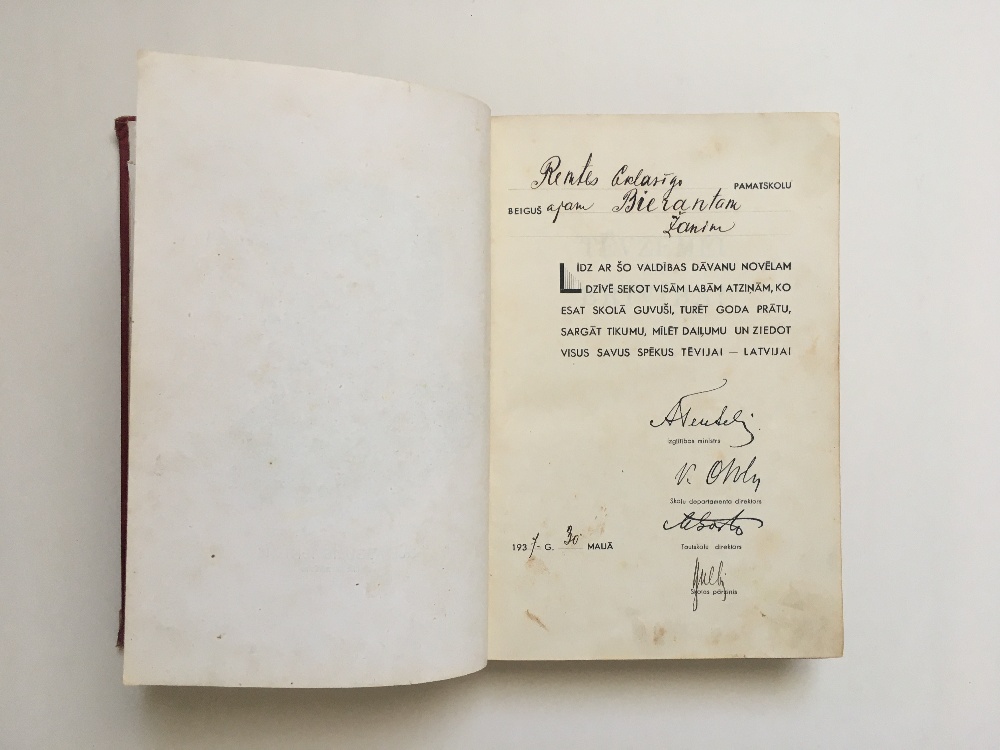 Remtes 6klasīgo PAMATSKOLU
BEIGUŠ ajam Bierantam
Žanim
LĪDZ AR ŠO VALDĪBAS DĀVANU NOVĒLAM
DZĪVĒ SEKOT VISĀM LABĀM ATZIŅĀM, KO
ESAT SKOLĀ GUVUŠI, TURĒT GODA PRĀTU,
SARGĀT TIKUMU, MĪLĒT DAIĻUMU UN ZIEDOT
VISUS SAVUS SPĒKUS TĒVIJAI — LATVIJAI
Izglītības ministrs
Skolu departamenta direktors
Tautskolu direktors
1937 G. 30 MAIJĀ
Skolas pārzinis